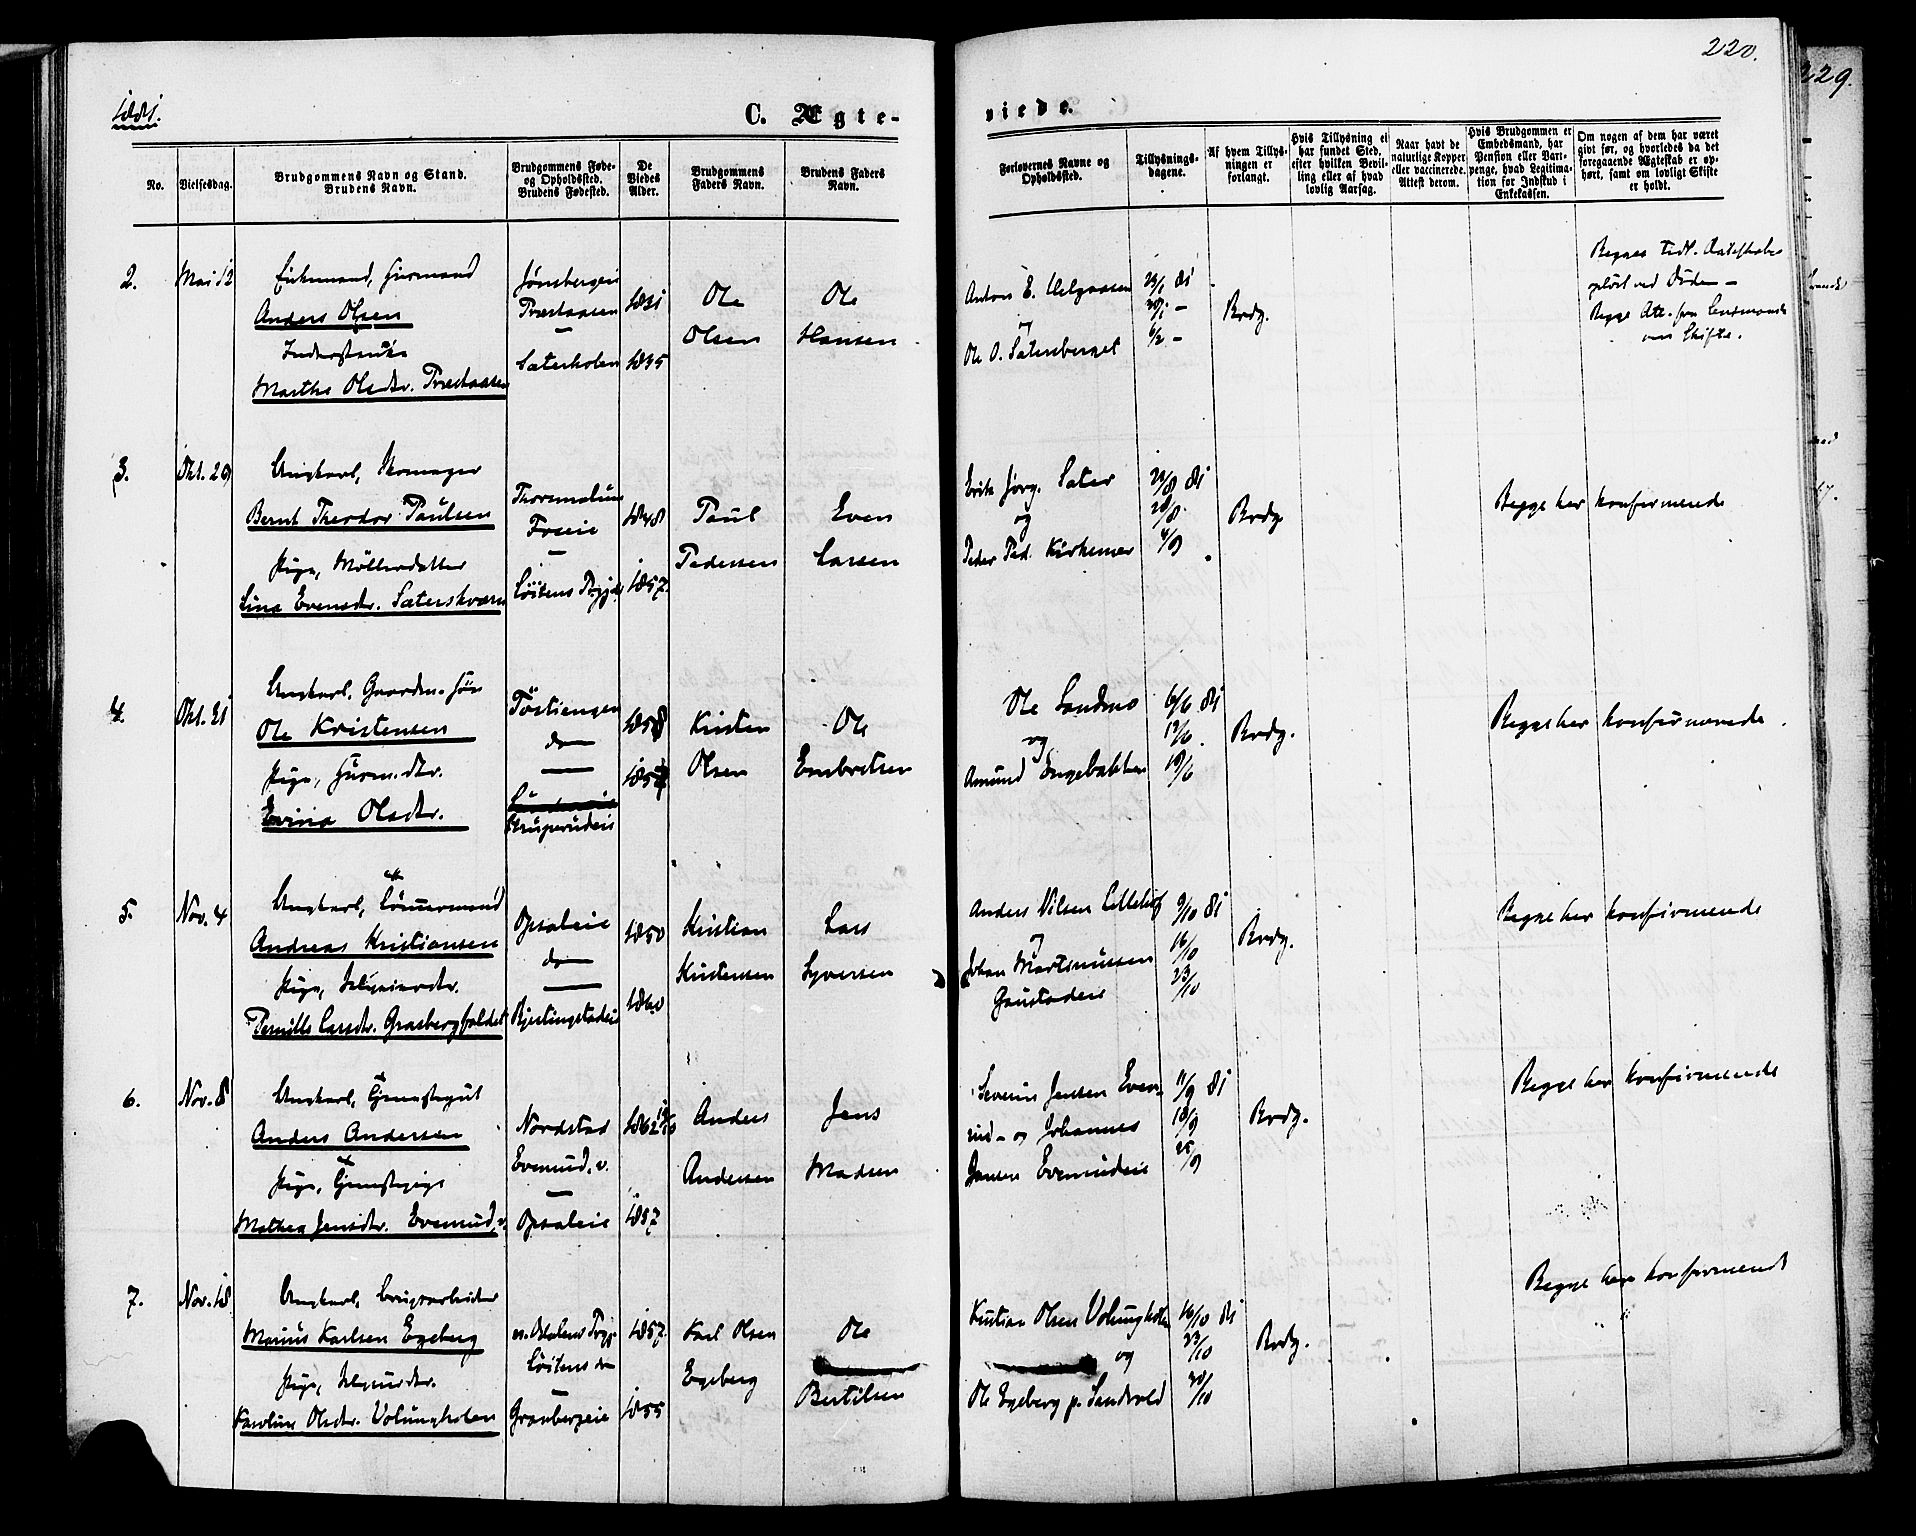 220.
229.
1881.
C. Ægte-
viede.
No.
Vielsesdag.
Brudgommens Navn og Stand.
Brudens Navn.
Brudgommens Føde-
og Opholdssted.
Brudens Fødested.
De
Viedes
Alder.
Brudgommens
Faders Navn.
Brudens Faders
Navn.
Forlovernes Navne og
Opholdssted.
Tillysnings-
dagene.
Af hvem Tillys-
ningen er
forlangt.
Hvis Tillysning ei
har fundet Sted,
efter hvilken Bevil-
ling eller af hvad
lovlig Aarsag.
Naar havt de
naturlige Kopper
eller vaccinerede.
Attest derom.
Hvis Brudgommen er
Embedsmand, har
Pension eller Vart-
penge, hvad Legitima-
tion for Indskud i
Enkekassen.
Om nogen af dem har været
givt før, og hvorledes da det
foregaaende Ægteskab er op-
hørt, samt om lovligt Skifte
er holdt.
2.
Mai 12
Enkemand,
Anders Olsen
Inderstenke
Marthe Olsdtr. Præstaasen
Jønsbergeie
Præstaasen
Sæterholen
1831
1835
Ole
Olsen
Ole
Hansen
Anton E. Helgaasen
og
Ole O. Sætersberget
23/1 81
30/1 -
6/2 -
Brdg.
Begges tidl. Ægteskaber
opløst ved Døden -
Begge Att. fra Lensmanden
om Skifte.
3.
Okt. 20
Ungkarl, Skomager
Bernt Theodor Paulsen
Pige, Møllerdatter
Lina Evensdtr. Sæterskværn
Freie
Løitens Prgjd
1848
1857.
Paul
Pedersen
Even
Larsen
Erik Jørg. Sæter
og
Peder Ped. Kirkemoe
28/8
4/9
Brdg.
Begge her konfirmerede
4.
Okt. 21
Ungkarl, Gaardm. søn
Ole Kristensen
Pige, Husm.dtr.
Evine Olsdtr.
Tøstiengen
do
Kruperudeie
1858
1857
Kristen
Olsen
Ole
Embretsen
Ole Sandmo
og
Amund Engebakken
6/6 81
12/6
19/6
Brdg.
Begge her konfirmerede.
5.
Nov. 4
Ungkarl, Tømmermand
Andreas Kristiansen
Pige, Selveierdtr.
Pernille Larsdtr. Grasbergfaldet
Opsaleie
do
Bjertingstadeie
1850
1860
Kristian
Kristensen
Lars
Syversen
Anders Nilsen Lillelief
og
Johan Martinussen
Gaustadeie
9/10 81
16/10
23/10
Brdg.
Begge her konfirmerede
6.
Nov. 8
Ungkarl, Tjenestegut
Anders Andersen
Pige, Tjenestepige
Mathea Jensdtr. Evenrud, v.
Nordstad
Evenrud, v.
Opsaleie
1862
1857
Anders
Andersen
Jens
Madsen
Severin Jensen Even-
rud - og Johannes
Jansen Evenrudeie
11/9 81
18/9
25/9
Brdg.
Begge her konfirmerede
7.
Nov. 18
Ungkarl, Brugsarbeider
Marius Karlsen Egeberg
Pige, Selveierdtr.
Karoline Olsdtr. Volungholen
Løitens do
Granbergeie
1857.
1855
Karl Olsen
Egeberg
Ole
Bertilsen
Kristian Olsen Volungholen
og
Ole Egeberg p. Sandvold
16/10 81
23/10
30/10
Brdg.
Begge her konfirmerede